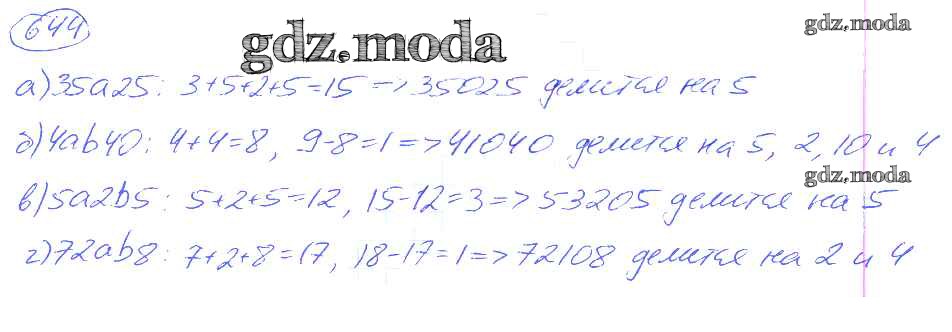 644
gdz.moda
gdz.moda
а) 35a25: 3+5+2+5=15 => 35025 делится на 5
б) 4ab40: 4+4=8, 9-8=1 => 41040 делится на 5, 2, 10 и 4
gdz.moda
в) 5a2b5: 5+2+5=12, 15-12=3 => 53205 делится на 5
г) 72ab8: 7+2+8=17, 18-17=1 => 72108 делится на 2 и 4